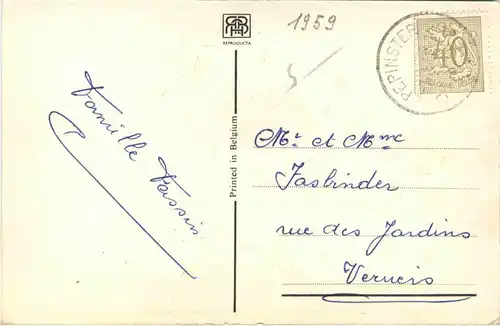 REPRODUCTA
1959
PEPINSTER
40
Famille Tassin
Printed in Belgium
Mr et Mme
Jasbinder
rue des Jardins
Verviers